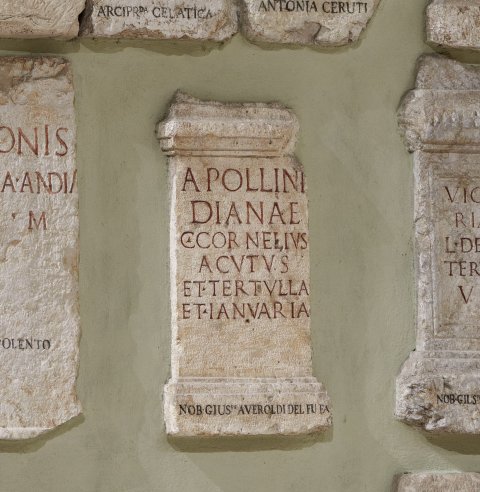 ARCIPR.RA CELATICA
ANTONIA CERUTI
ONIS
A·ANDIA
M
POLENTO
APOLLINI
DIANAE
C·CORNELIUS
ACVTVS
ET·TERTVLLA
ET·IANVARIA
NOB GIUS.PE AVEROLDI DEL FU FA
VIC
RIA
L·DE
TER
V
NOB·GIUS